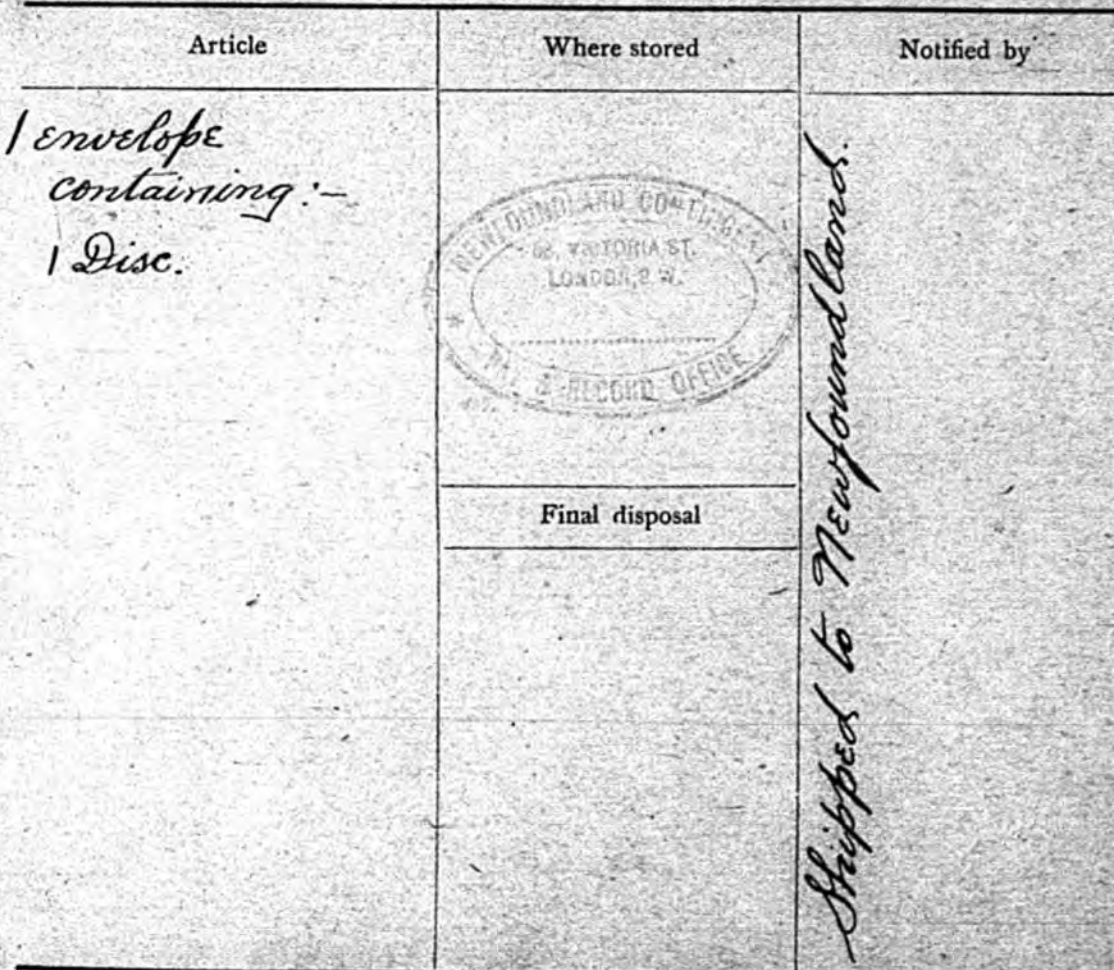 Article
Where stored
Notified by
1 envelope
containing:-
1 Disc.
NEWFOUNDLAND CONTINGENT
VICTORIA ST.
LONDON, S.W.
PAY & RECORD OFFICE
Final disposal
Shipped to Newfoundland.